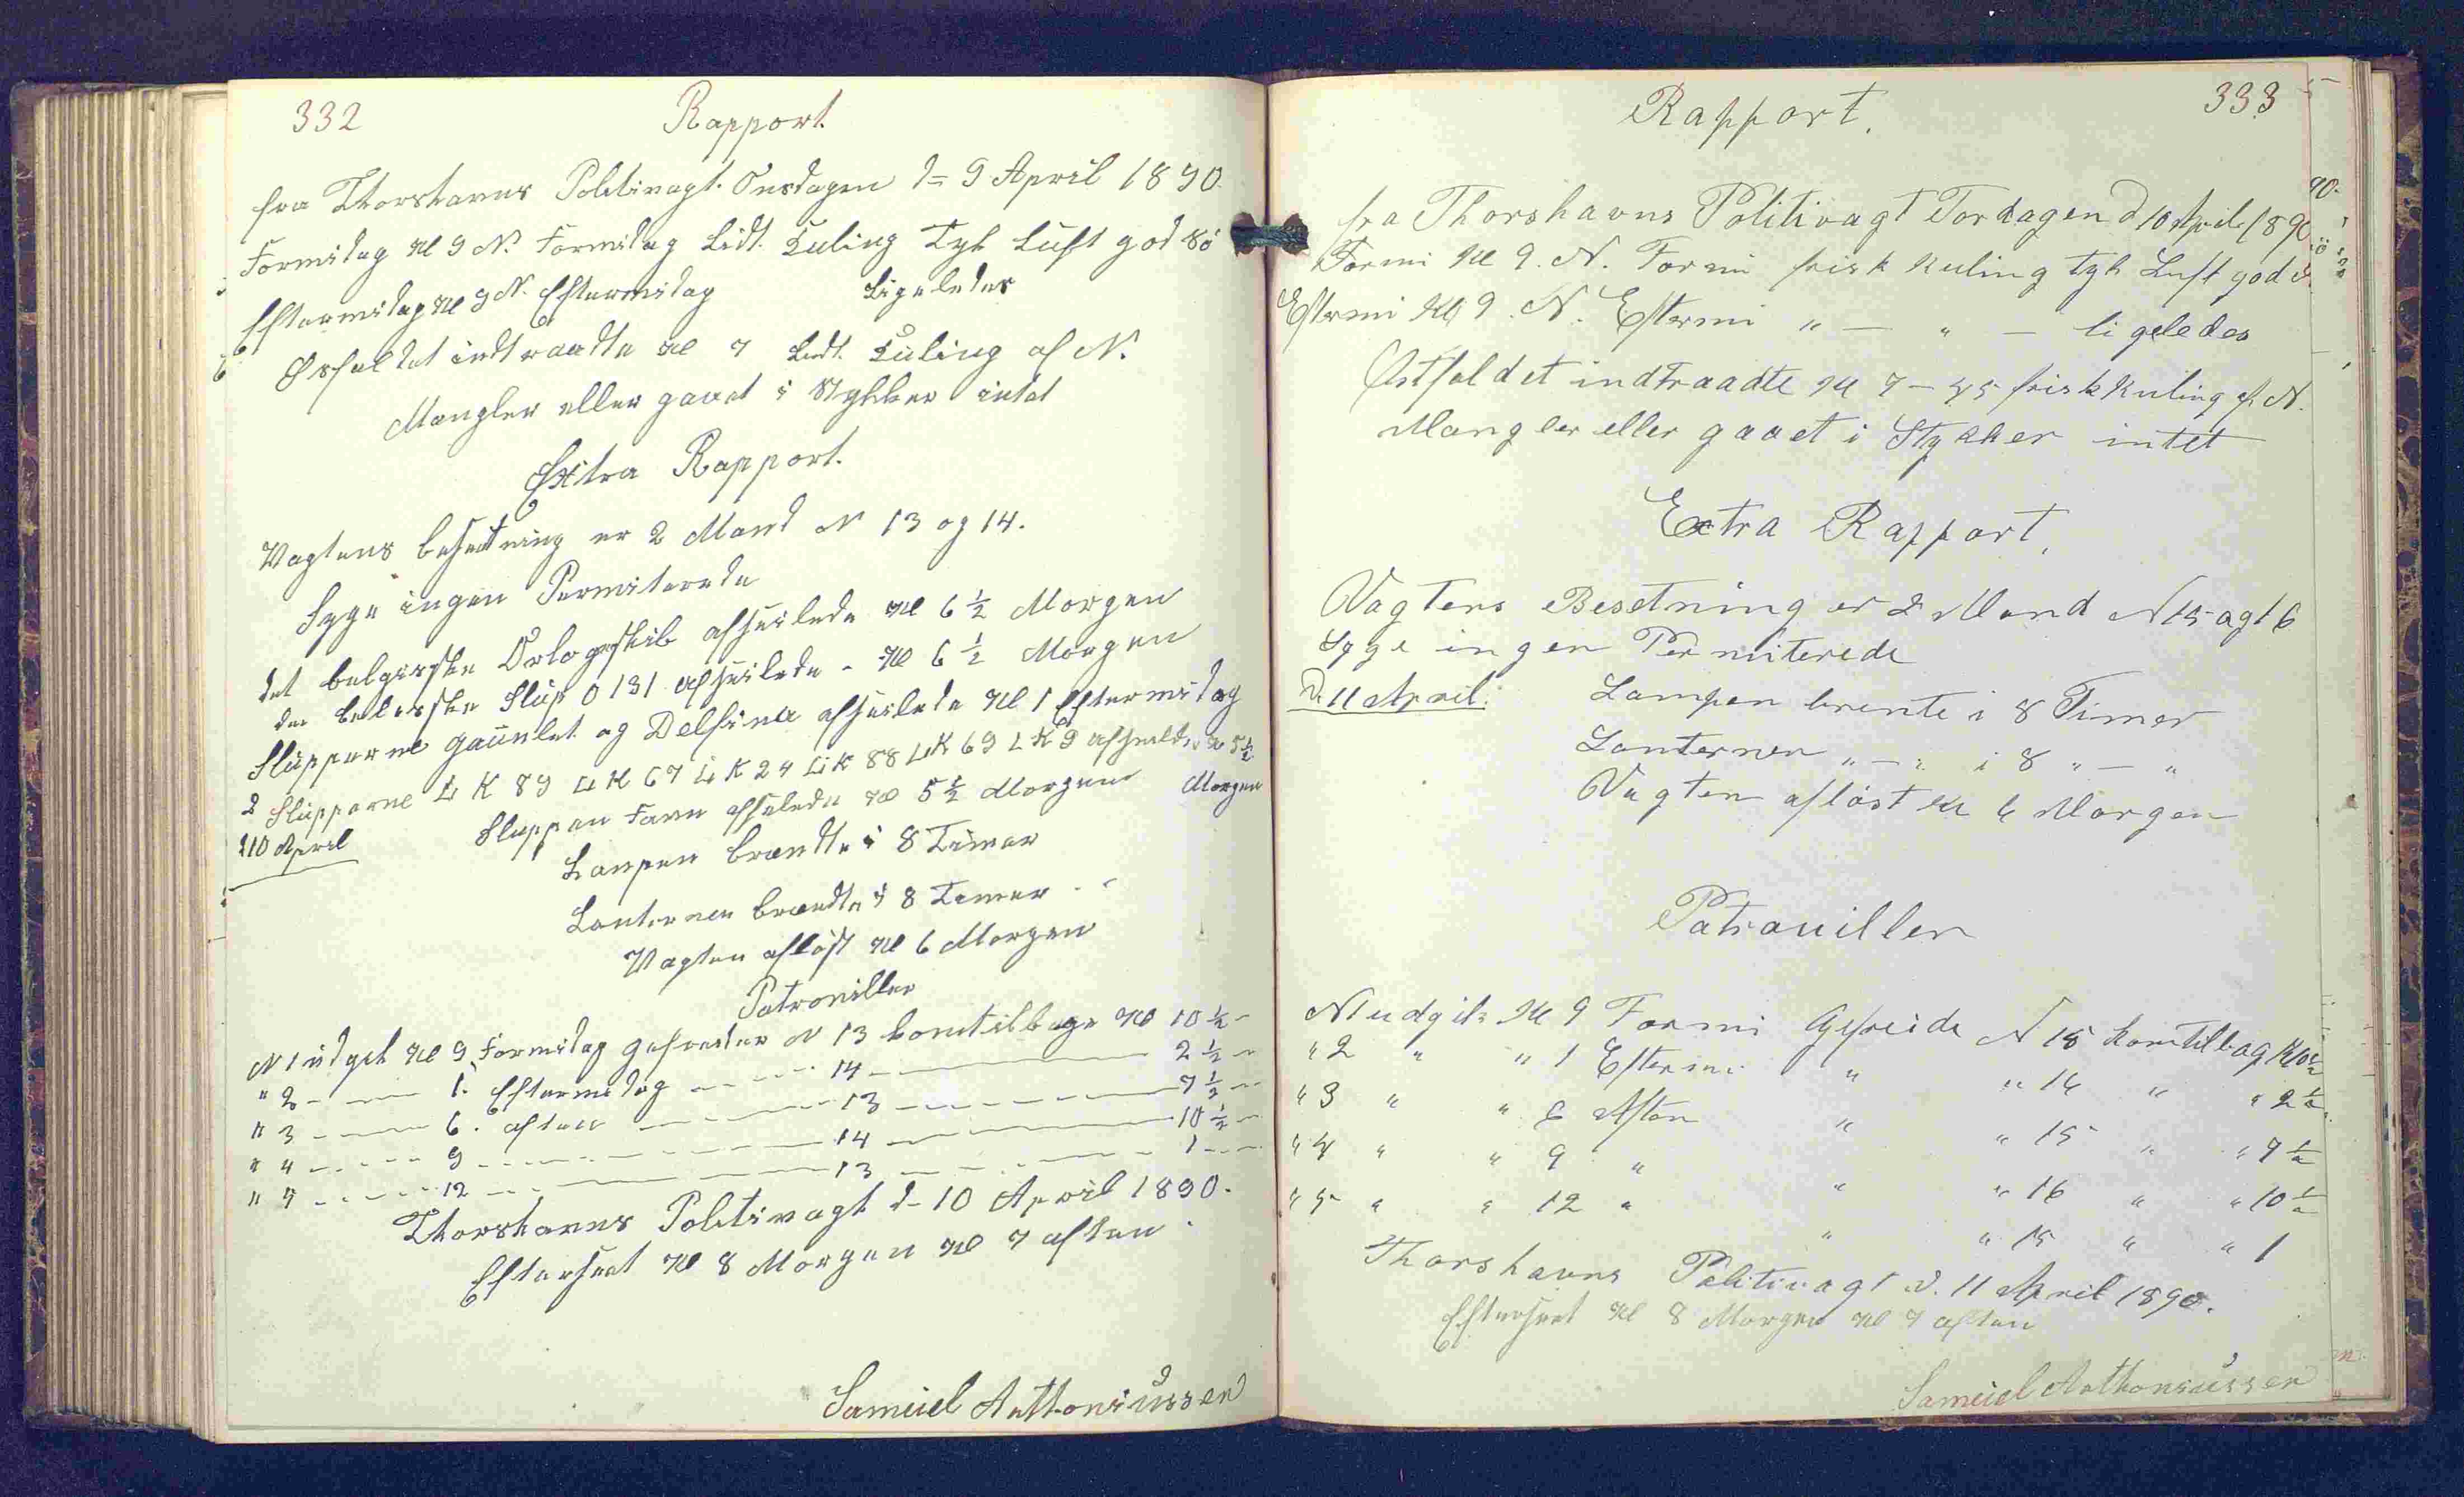 332
Rapport.
fra Thorshavns Politivagt. Onsdagen d= 9 April 1890.
Formidag Kl 9 N. Formidag Lidt. Kuling Tyk Luft god Sö
Eftermidag Kl 9 N. Eftermidag Ligeledes
Østfaldet indtraadte Kl 7 Lidt. Kuling af N.
Mangler eller gaaet i Stykker intet
Extra Rapport.
Vagtens besætning er 2 Mand N 13 og 14.
Syge ingen Permiterede
det belgisske Orlogsskib afseilede Kl 6 ½ Morgen
den belgisske Slup O 131 afseilede - Kl 6 ½ Morgen
Slupperne Gauntlet og Delfina afseilede Kl 1 Eftermidag
Slupperne LK 89 LK 67 LK 24 LK 88 LK 69 LK 9 afseilede Kl 5½
Morgen
Sluppen Favn afseilede Kl 5 ½ Morgen
d 10 April
Lampen brændte i 8 Timer
Lanternen brændte i 8 Timer - -
Vagten aflöst Kl 6 Morgen
Patrouiller
N 1 udgik Kl 9 Formidag gefreider N 13 komtilbage Kl 10 ½ -
" 2 - - - 1. Eftermidag - - - 14 - - - 2 ½ -
" 3 - - - 6. aften - - - 13 - - - 7 ½ -
" 4 - - - 9 - - - 14 - - - 10 ½ -
" 5 - - - 12 - - - 13 - - - 1 - -
Thorshavns Politivagt d- 10 April 1890.
Efterseet Kl 8 Morgen Kl 7 aften
Samuel Anthoniussen
333
Rapport.
fra Thorshavns Politivagt Torsdagen d 10 April 1890
Formi Kl 9. N. Formi frisk Kuling tyk Luft god S.
Eftermi Kl 9. N. Eftermi " — " — ligeledes
Østfaldet indtraadte Kl 7 - 45 frisk Kuling af N.
Mangler eller gaaet i Stykker intet
Extra Rapport.
Vagtens Besetning er 2 Mand N 15 og 16
Syge ingen Permiterede
D. 11 April.
Lampen brente i 8 Timer
Lanternen " — " i 8 " — "
Vagten aflöst Kl 6 Morgen
Patrouiller
N 1 udgik Kl 9 Formi Gefreide N 15 komtilbag Kl 10½
" 2 " " 1 Eftermi " " 16 " " 2 ½
" 3 " " 6 Aften " " 15 " " 7 ½
" 4 " " 9 " " " 16 " " 10 ½
" 5 " " 12 " " " 15 " " 1
Thorshavns Politivagt d. 11 April 1890.
Efterseet Kl 8 Morgen Kl 7 aften
Samuel Anthoniussen